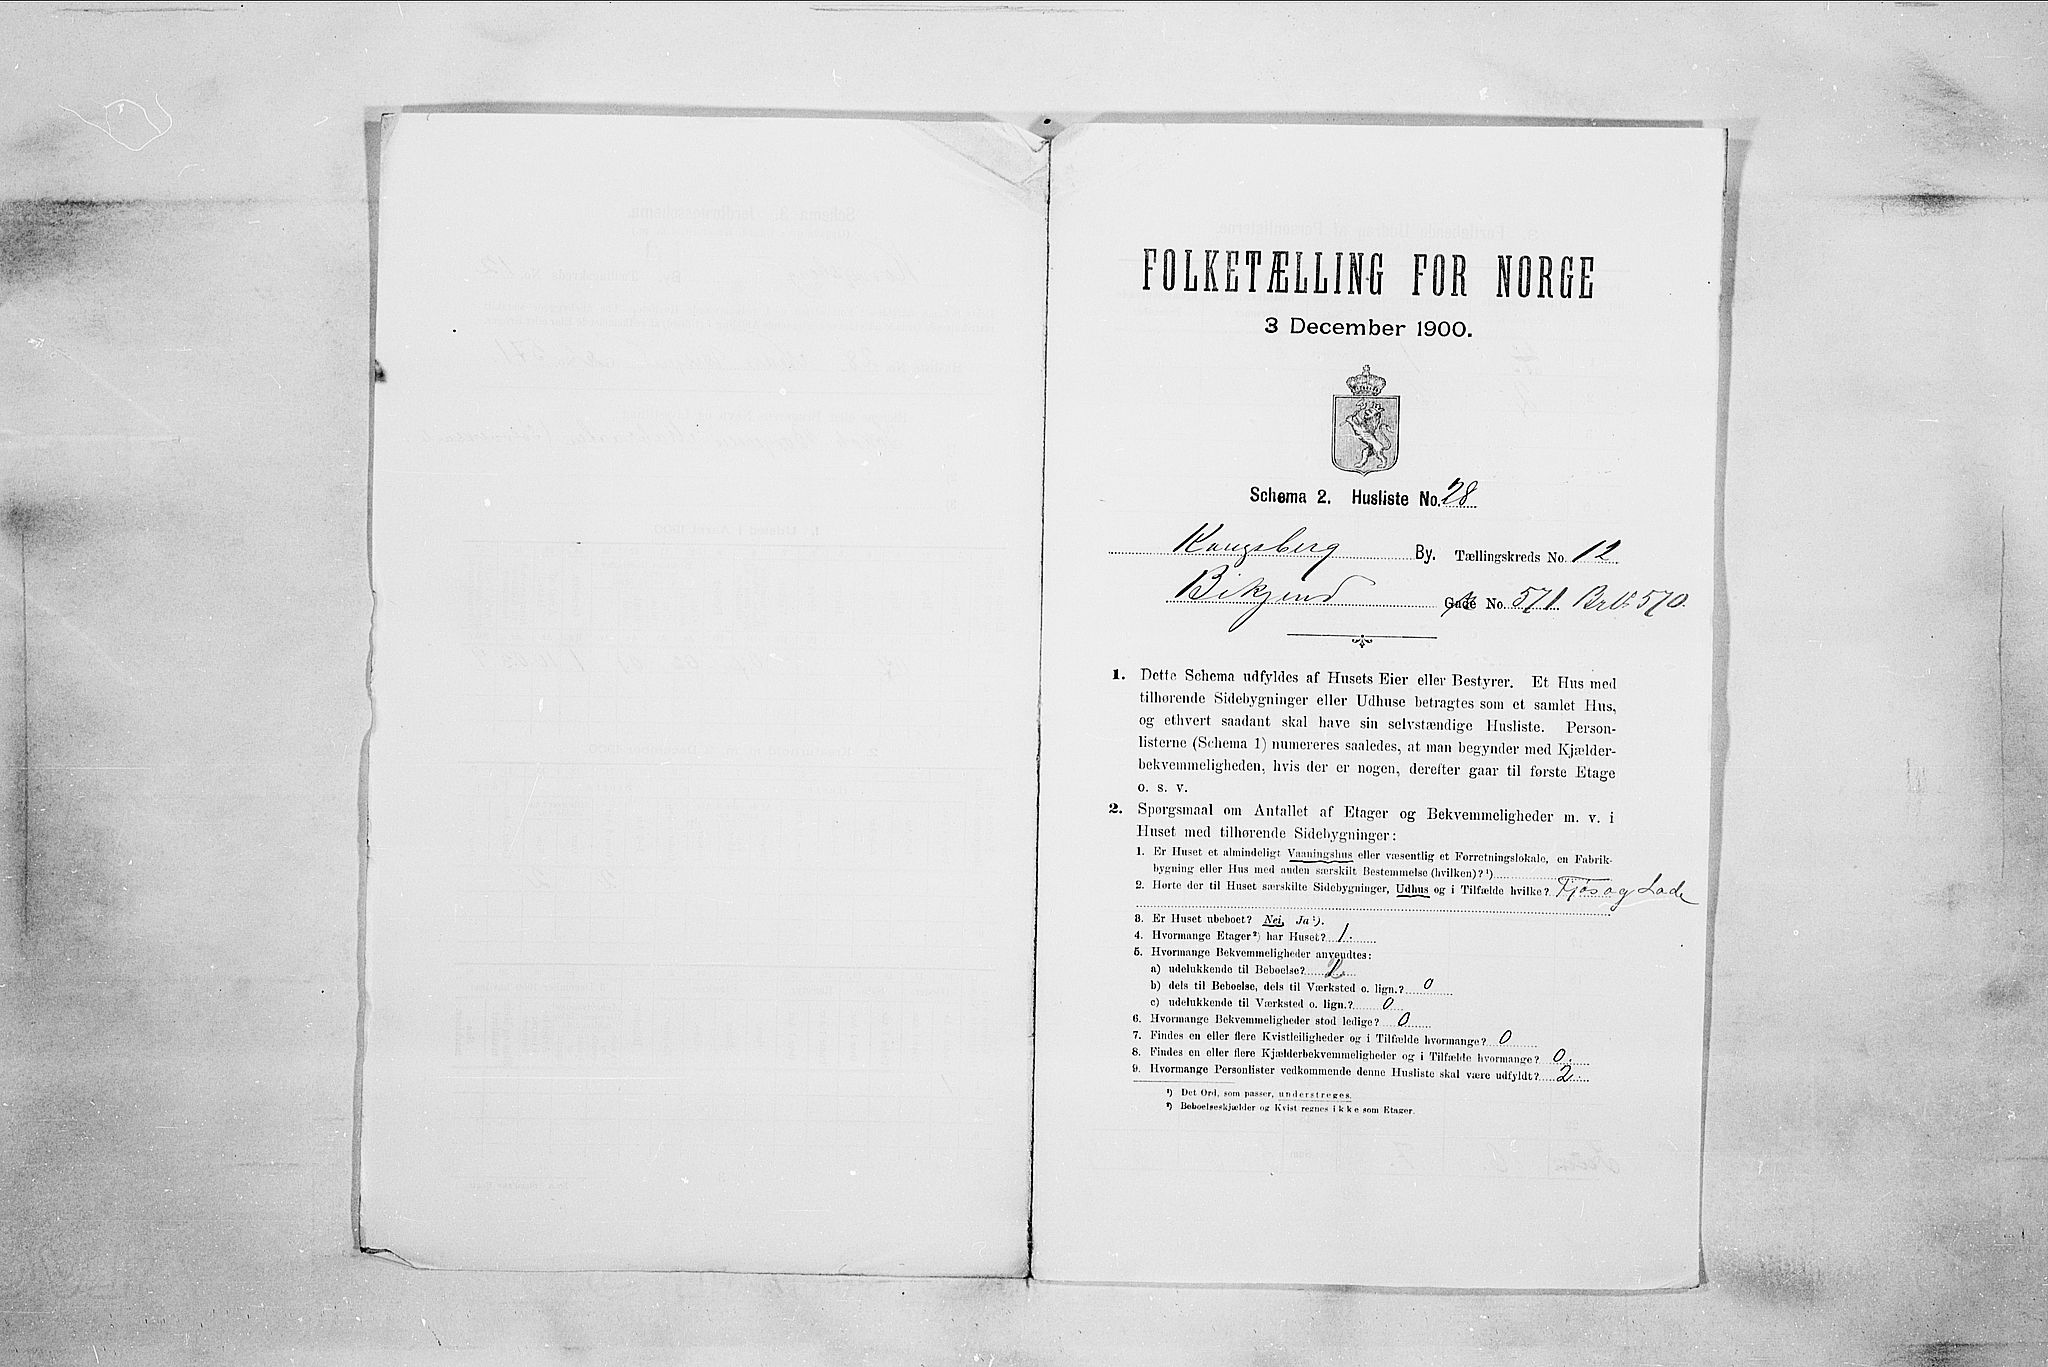 FOLKETÆLLING FOR NORGE
3 December 1900.
Schema 2. Husliste No. 28
Kongsberg By. Tællingskreds No. 12
Bikjend Gade No. 571 Brlb 570.
1. Dette Schema udfyldes af Husets Eier eller Bestyrer. Et Hus med
tilhørende Sidebygninger eller Udhuse betragtes som et samlet Hus,
og ethvert saadant skal have sin selvstændige Husliste. Person-
listerne (Schema 1) numereres saaledes, at man begynder med Kjælder-
bekvemmeligheden, hvis der er nogen, derefter gaar til første Etage
o. s. v.
2. Spørgsmaal om Antallet af Etager og Bekvemmeligheder m. v. i
Huset med tilhørende Sidebygninger:
1. Er Huset et almindeligt Vaaningshus eller væsentlig et Forretningslokale, en Fabrik-
bygning eller Hus med anden særskilt Bestemmelse (hvilken)? ¹)
2. Hørte der til Huset særskilte Sidebygninger, Udhus og i Tilfælde hvilke? Fjøs og Lade
3. Er Huset ubeboet? Nei, Ja ¹).
4. Hvormange Etager ²) har Huset? 1.
5. Hvormange Bekvemmeligheder anvendtes:
a) udelukkende til Beboelse? 2
b) dels til Beboelse, dels til Værksted o. lign.? 0
c) udelukkende til Værksted o. lign.? 0
6. Hvormange Bekvemmeligheder stod ledige? 0
7. Findes en eller flere Kvistleiligheder og i Tilfælde hvormange? 0
8. Findes en eller flere Kjælderbekvemmeligheder og i Tilfælde hvormange? 0.
9. Hvormange Personlister vedkommende denne Husliste skal være udfyldt? 2.
¹) Det Ord, som passer, understreges.
²) Beboelseskjælder og Kvist regnes ikke som Etager.